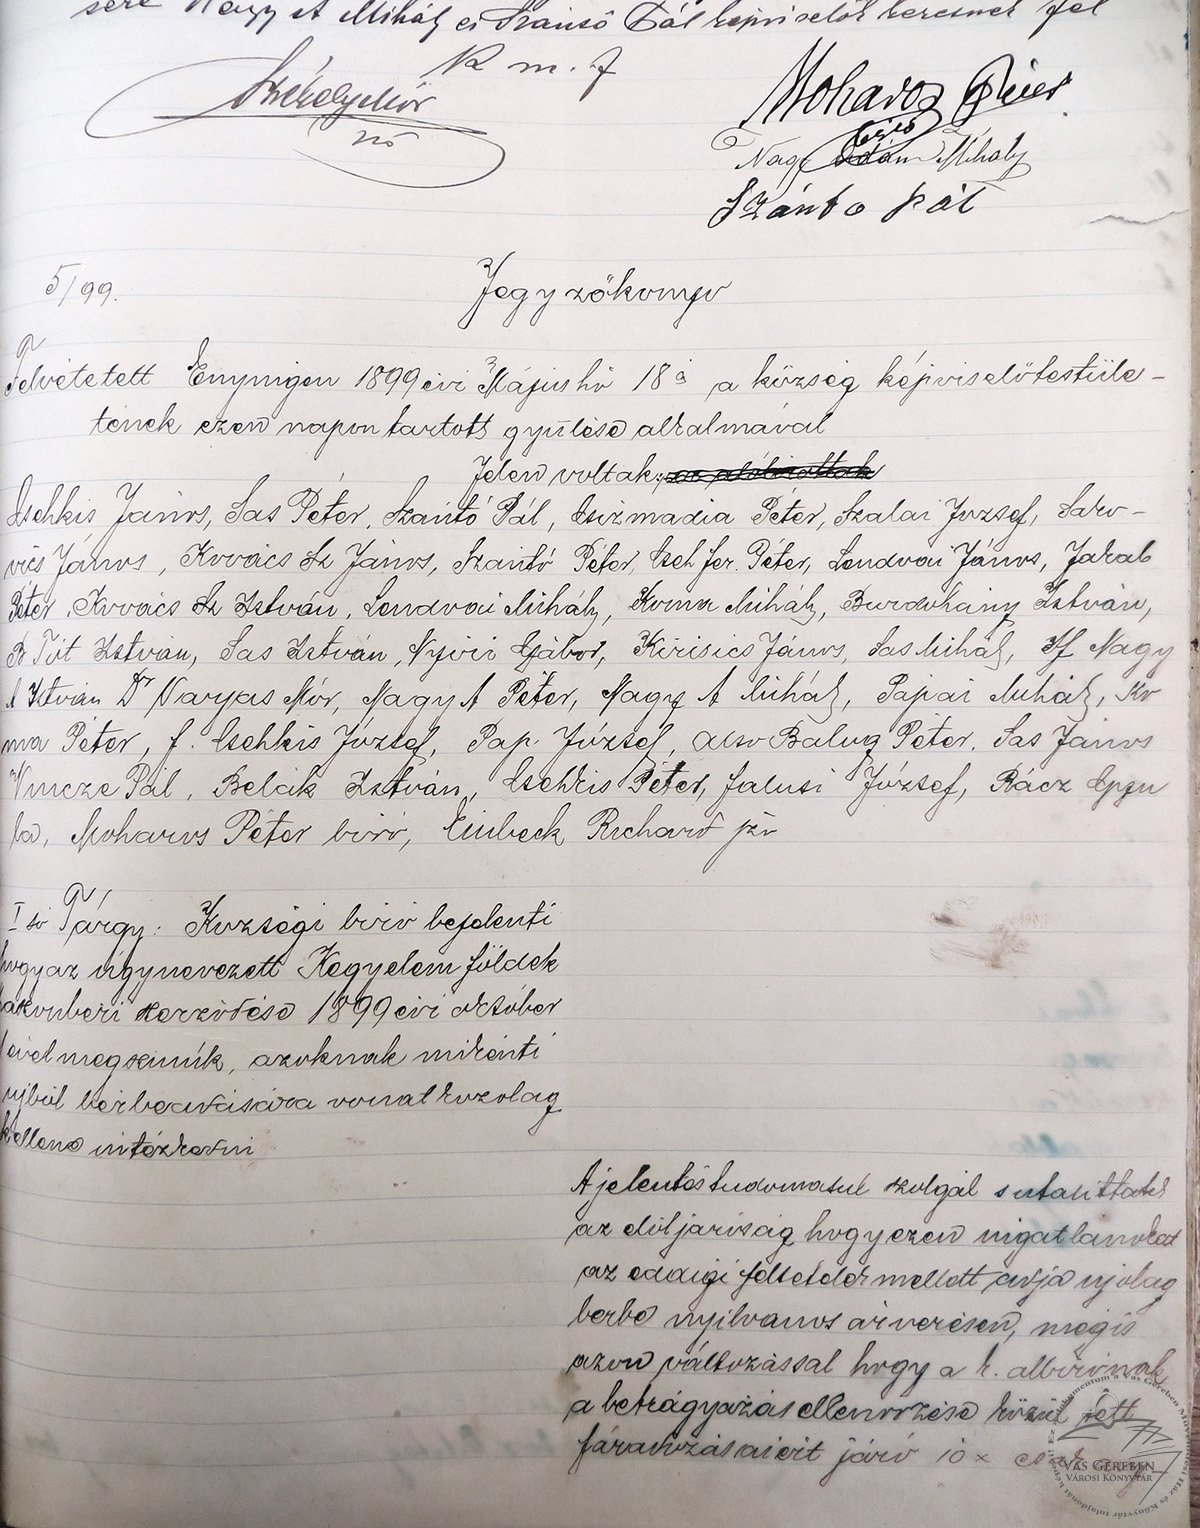 sére Nagy A Mihály és Szántó Pál képviselők kéretnek fel
K m. f
Székely Mór
Moharos Péter
biró
Nagy Ádám Mihály
Szántó Pál
5/99.
Jegyzőkönyv
Felvétetett Enyingen 1899 évi Május hó 18 á a község képviselőtestüle-
tének ezen napon tartott gyűlése alkalmával
Jelen voltak:
Csehkis János, Sas Péter, Szántó Pál, Csizmadia Péter, Szalai József, Sáro-
vics János, Kovács Sz János, Szántó Péter, Cseh fer. Péter, Lendvai János, Jakab
Péter, Kovács Sz István, Lendvai Mihály, Koma Mihály, Burdohány István,
B Tót István, Sas István, Nyiri Gábor, Kirisics János, Sas Mihály, If Nagy
A István Dr Vargas Mór, Nagy A Péter, Nagy A Mihály, Pápai Mihály, Ko
ma Péter, f. Csehkis József, Pap József, also Balog Péter, Sas János
Vincze Pál, Belák István, Csehkis Péter, Falusi József, Rácz
Moharos Péter biró, Einbeck Richard jző
I ső Tárgy: Községi biró bejelenti
hogy az úgynevezett Kegyelem földek
1899 évi október
megszünik, azoknak mikénti
ujból bérbeadására vonatkozolag
kellene intézkedni
A jelentés tudomásul szolgál s utasittatik
az elöljáróság hogy ezen ingatlanokat
az eddigi feltételek mellett adja ujolag
bérbe nyilvános árverésen, mégis
azon változással hogy a k. albirónak
a betrágyázás ellenőrzése körül tett
fáradozásaiért járó 10 x
VAS GEREBEN
VÁROSI KÖNYVTÁR